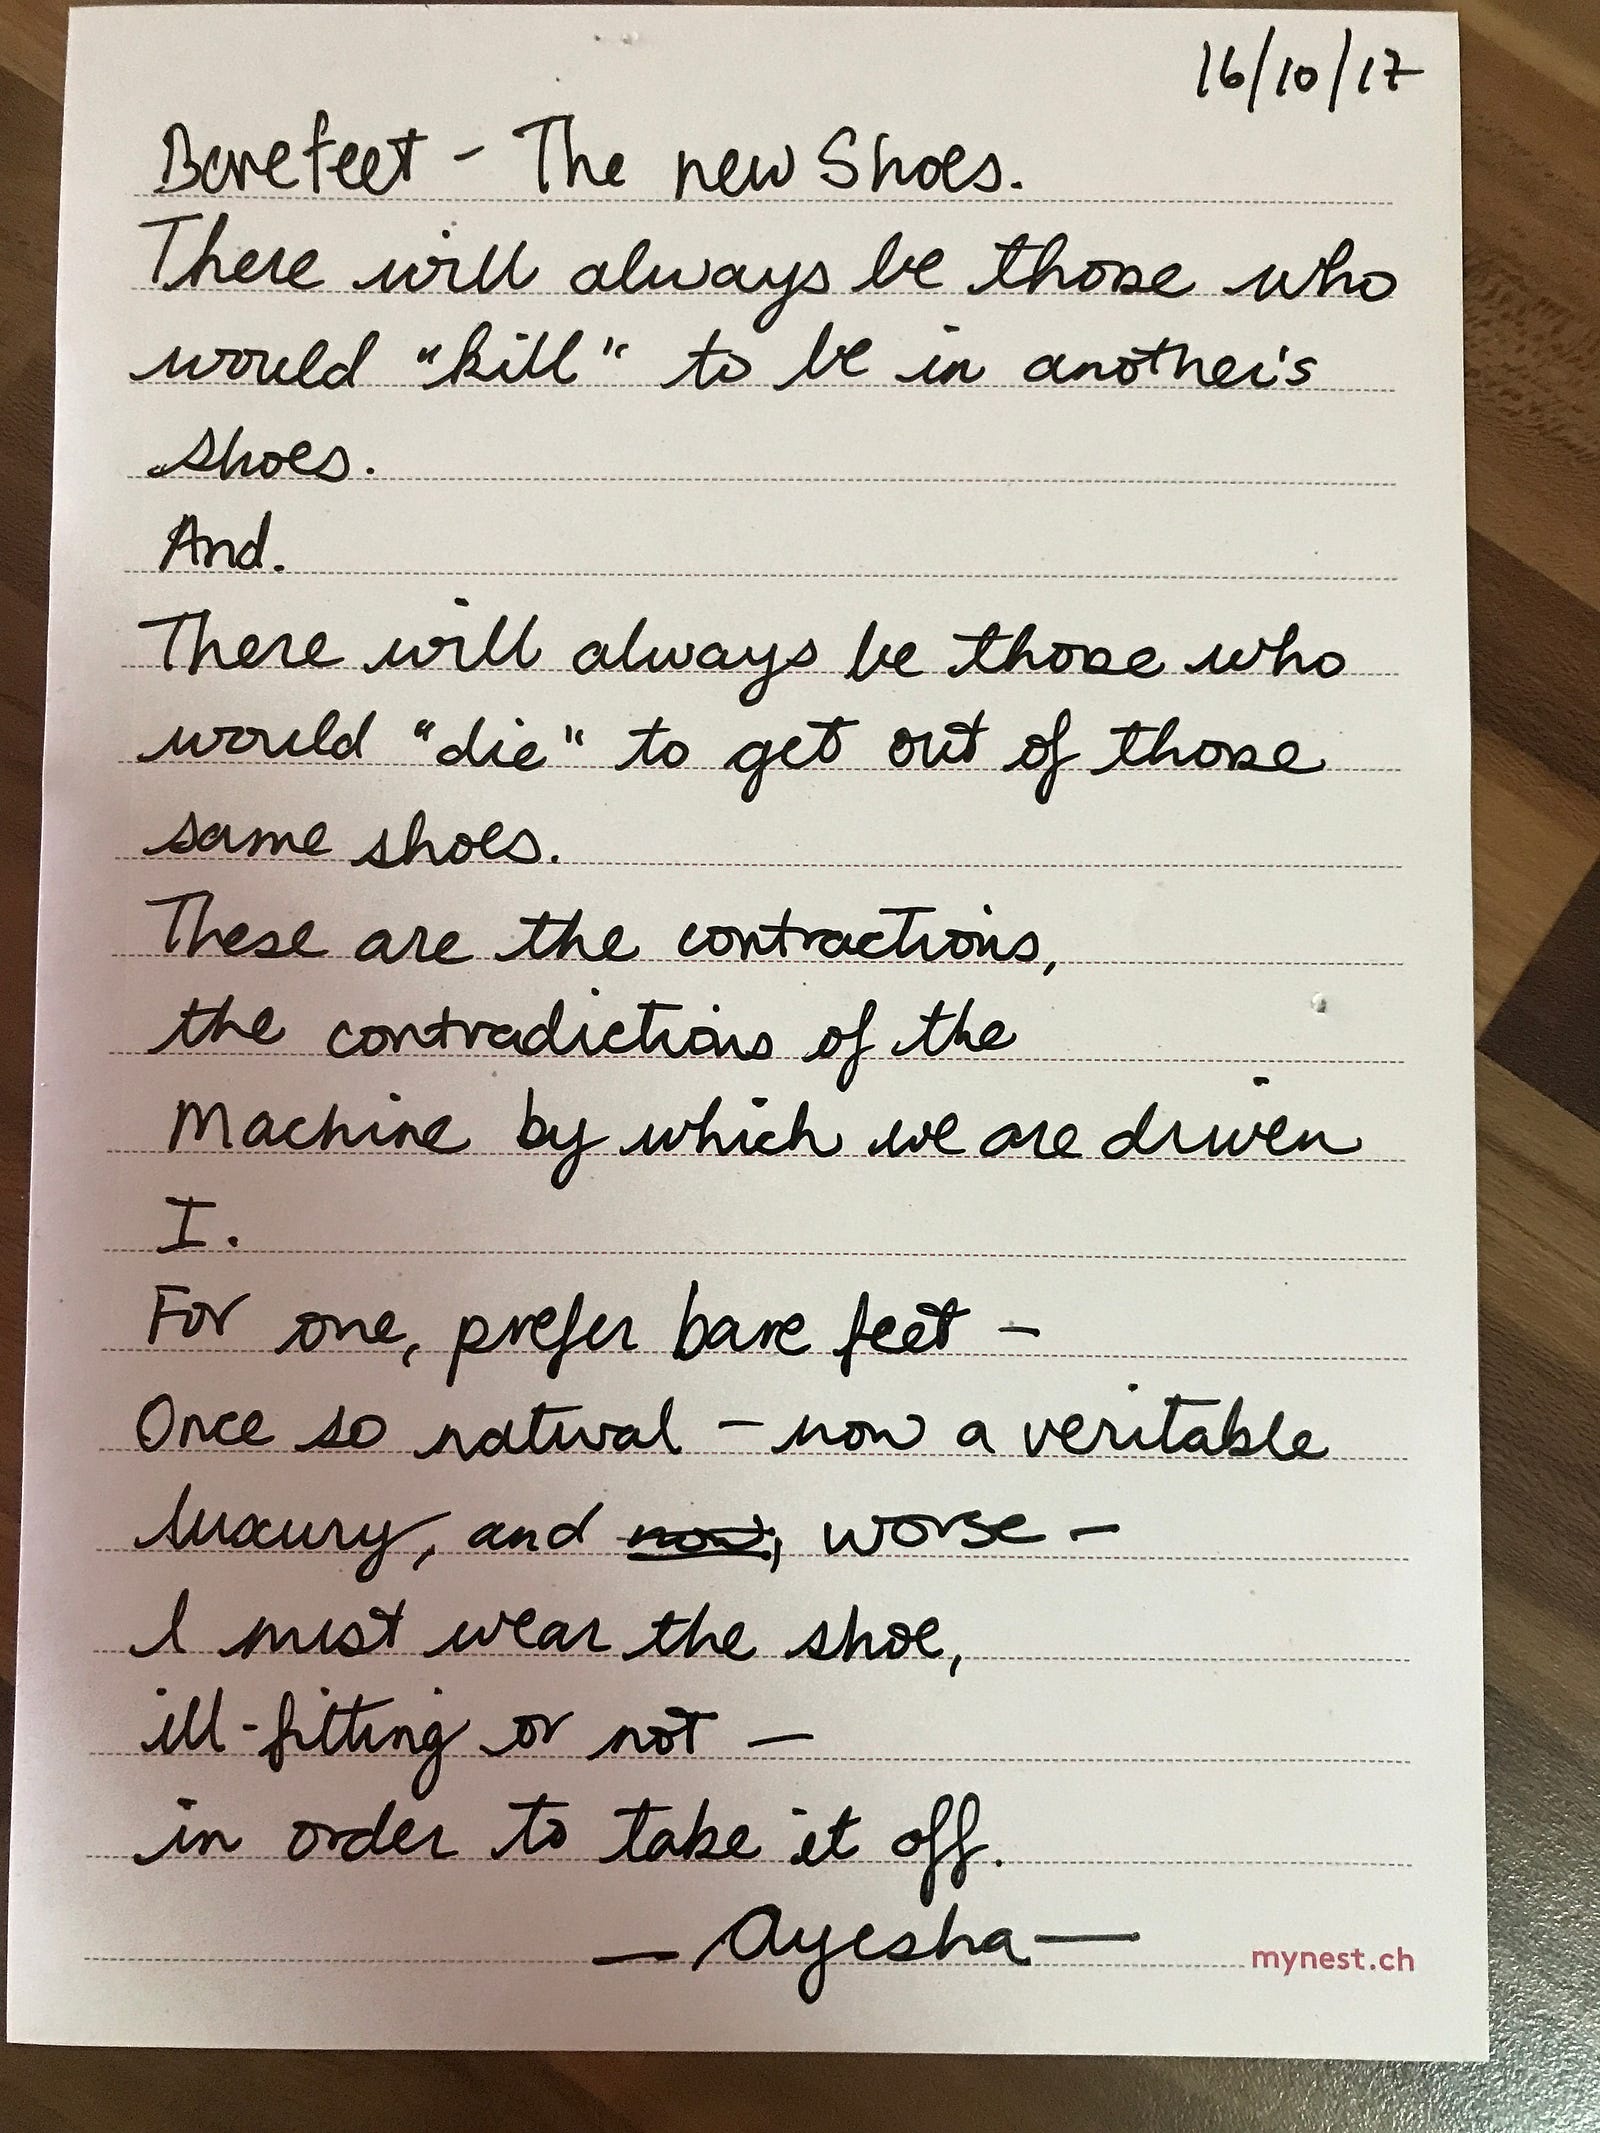 16/10/17
Barefeet - The new Shoes.
There will always be those who
would "kill" to be in another's
shoes.
And.
There will always be those who
would "die" to get out of those
same shoes.
These are the contractions,
the contradictions of the
Machine by which we are driven
I.
For one, prefer bare feet -
Once so natural - now a veritable
luxury, and now, worse -
I must wear the shoe,
ill-fitting or not -
in order to take it off.
- Ayesha -
mynest.ch